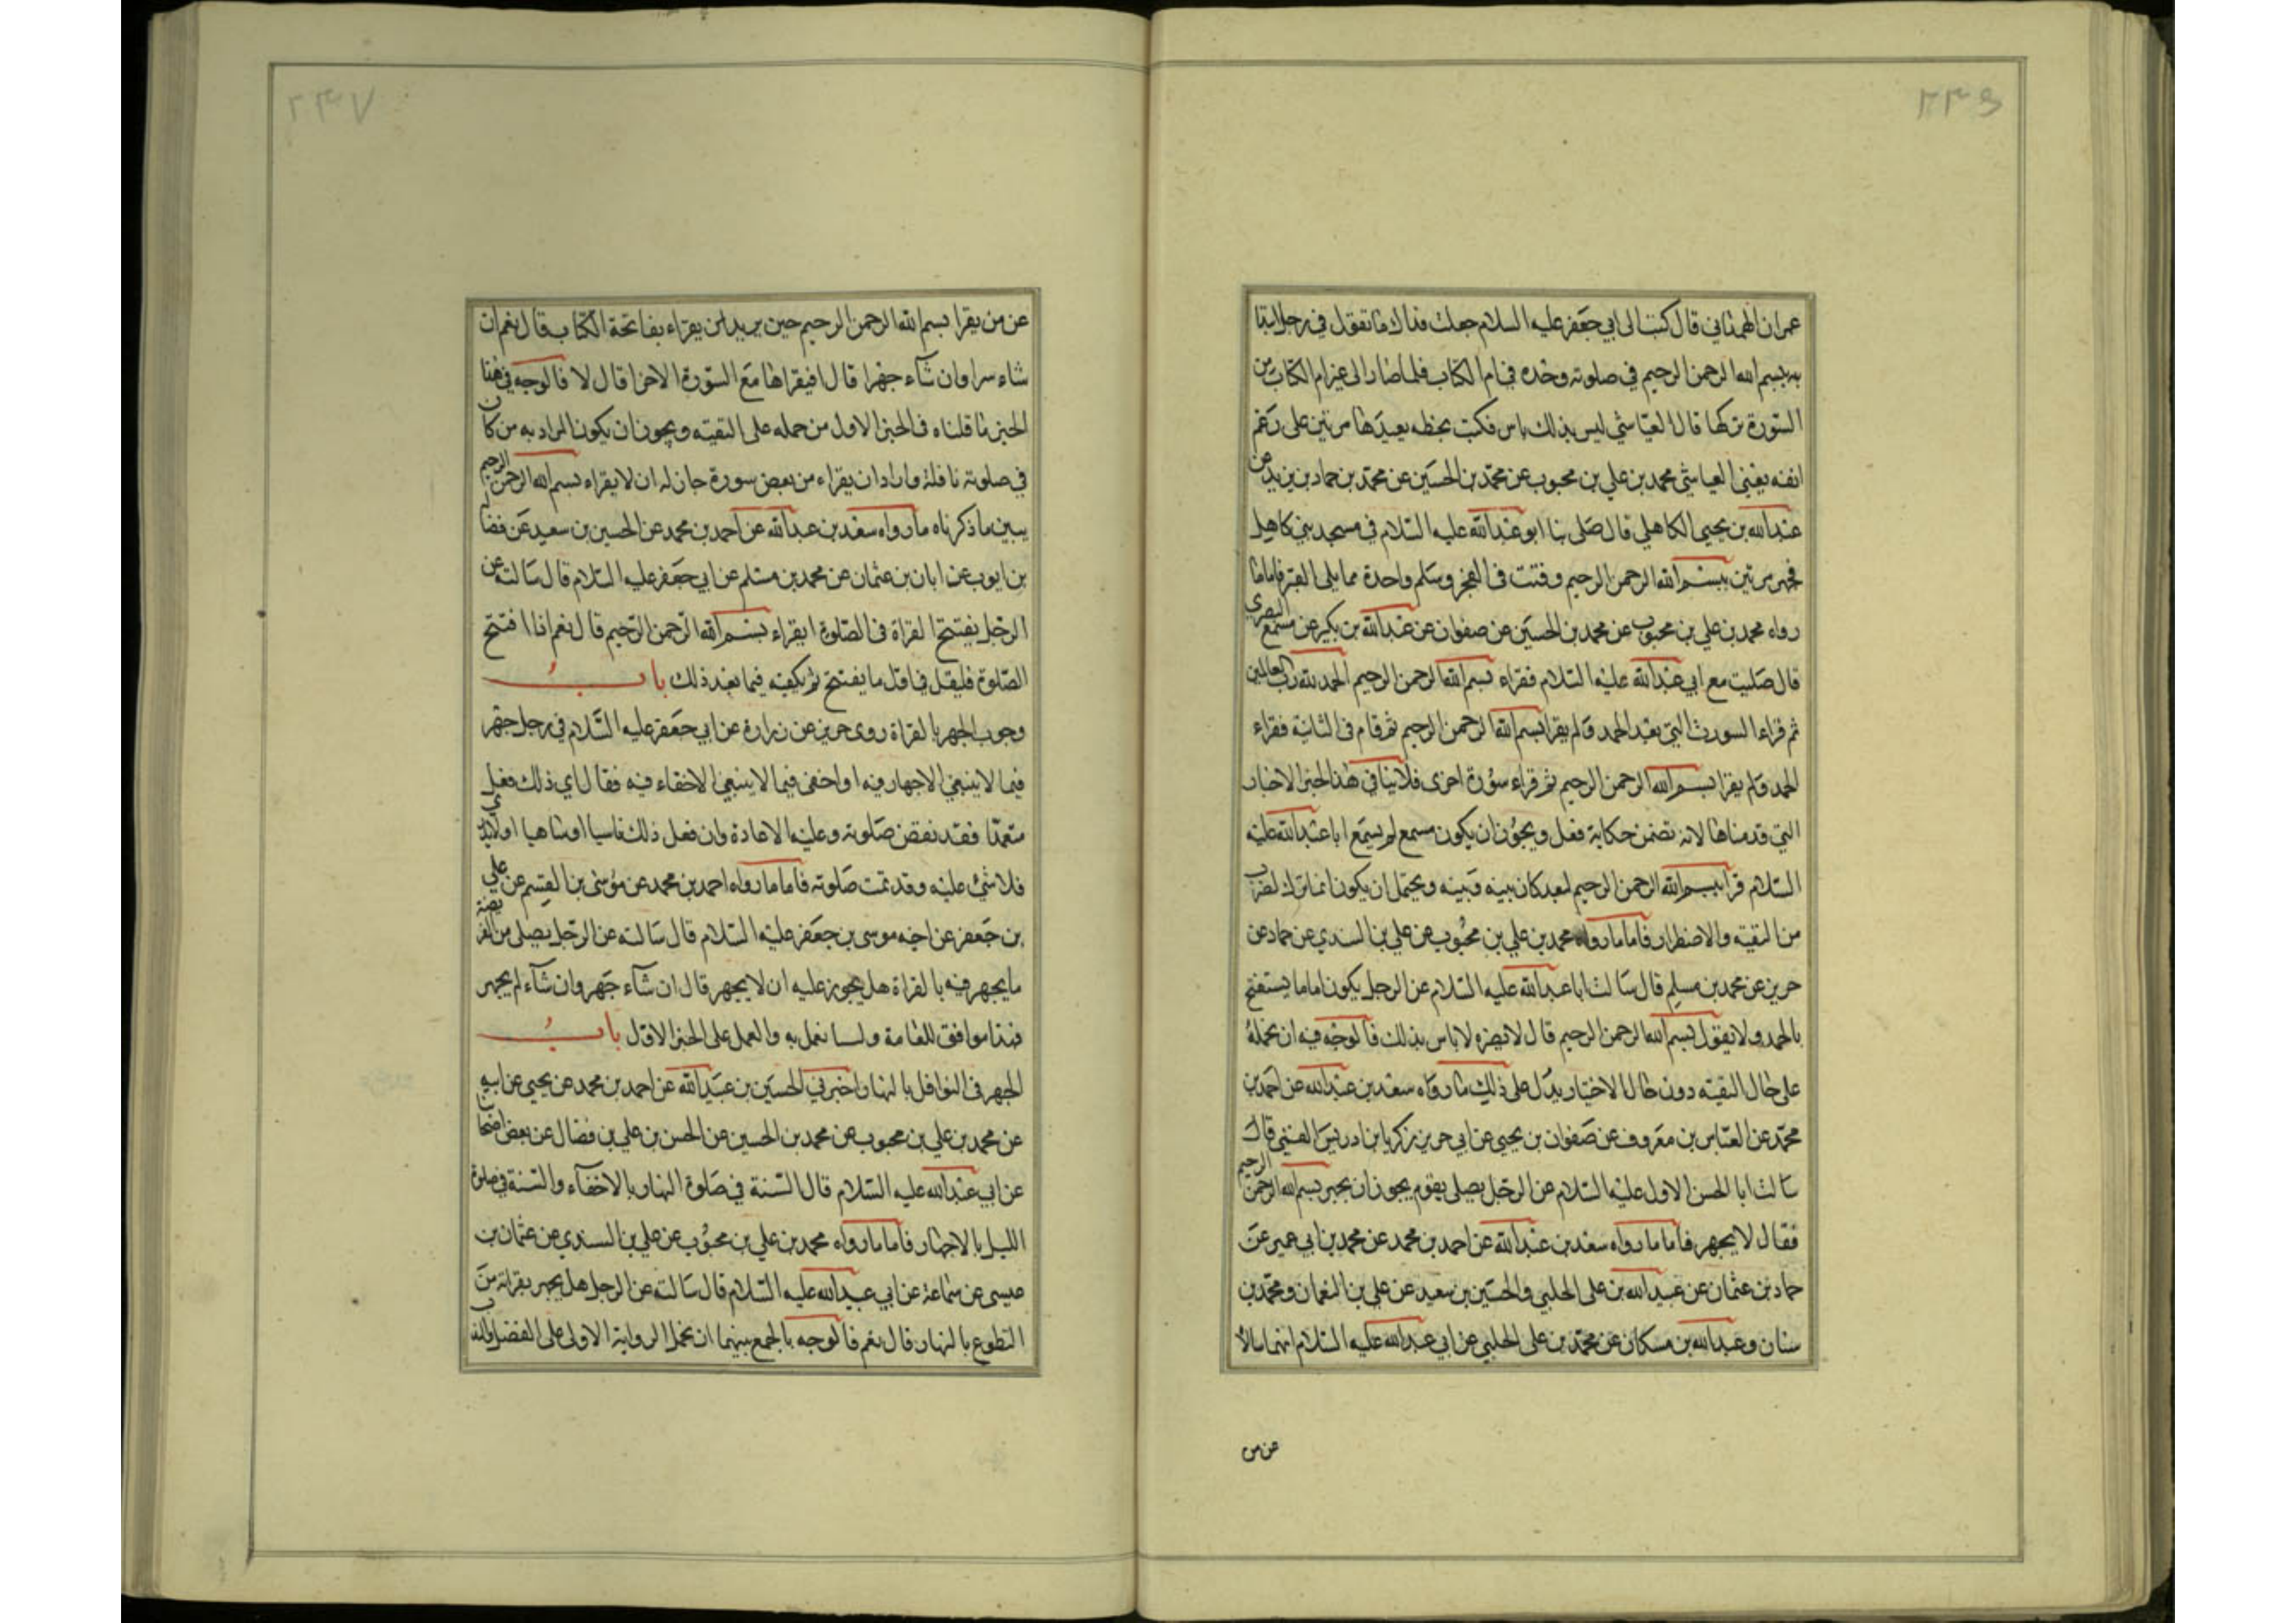 ٢٣٦
عمران الهمداني قال كتبت الى ابي جعفر عليه السلام جعلت فداك ما تقول في رجل ابتدا
به بسم الله الرحمن الرحيم في صلوته وحده في ام الكتاب فلما صار الى غير ام الكتاب من
السورة تركها قال العياشي ليس بذلك باس فكتب بخطه يعيدها مرتين على رغم
انفه يعني العياشي محمد بن علي بن محبوب عن محمد بن الحسين عن محمد بن حماد بن يزيد عن
عبد الله بن يحيى الكاهلي قال صلى بنا ابو عبد الله عليه السلام في مسجد بني كاهل
فجهر مرتين ببسم الله الرحمن الرحيم وقنت في الفجر وسلم واحدة مما يلي القبر فاما ما
رواه محمد بن علي بن محبوب عن محمد بن الحسين عن صفوان عن عبد الله بن بكير عن مسمع البصري
قال صليت مع ابي عبد الله عليه السلام فقراء بسم الله الرحمن الرحيم الحمد لله رب العالمين
ثم قراء السورة التي بعد الحمد ولم يقرا بسم الله الرحمن الرحيم ثم قام في الثانية فقراء
الحمد ولم يقرا بسم الله الرحمن الرحيم ثم قراء سورة اخرى فلا ينافي هذا الخبر الاخبار
التي قدمناها لانه تضمن حكاية فعل ويجوز ان يكون مسمع لم يسمع ابا عبد الله عليه
السلام قرا ببسم الله الرحمن الرحيم لبعد كان بينه وبينه ويحتمل ان يكون انما ترك لضرب
من التقيه والاضطرار فاما ما رواه محمد بن علي بن محبوب عن علي بن السندي عن حماد عن
حريز عن محمد بن مسلم قال سالت ابا عبد الله عليه السلام عن الرجل يكون اماما يستفتح
بالحمد ولا يقول بسم الله الرحمن الرحيم قال لا يضره لا باس بذلك فالوجه فيه ان نحمله
على حال التقيه دون حال الاختيار يدل على ذلك ما رواه سعد بن عبد الله عن احمد بن
محمد عن العباس بن معروف عن صفوان بن يحيى عن ابي حريز زكريا بن ادريس القمي قال
سالت ابا الحسن الاول عليه السلام عن الرجل يصلي بقوم يجوز ان يجهر ببسم الله الرحمن الرحيم
فقال لا يجهر فاما ما رواه سعد بن عبد الله عن احمد بن محمد عن محمد بن ابي عمير عن
حماد بن عثمان عن عبيد الله بن على الحلبي والحسين بن سعيد عن علي بن النعمان ومحمد بن
سنان وعبد الله بن مسكان عن محمد بن على الحلبي عن ابي عبد الله عليه السلام انهما سالا
عن من
٢٣٧
عن من يقرا بسم الله الرحمن الرحيم حين يريد ان يقراء بفاتحة الكتاب قال نعم ان
شاء سرا وان شاء جهرا قال افيقراها مع السورة الاخرا قال لا فالوجه في هذا
الخبر ما قلناه في الخبر الاول من حمله على التقيه ويجوز ان يكون المراد به من كان
في صلوته نافلة واراد ان يقراء من بعض سورة جاز له ان لا يقراء بسم الله الرحمن الرحيم
يبين ما ذكرناه ما رواه سعد بن عبد الله عن احمد بن محمد عن الحسين بن سعيد عن فضاله
بن ايوب عن ابان بن عثمان عن محمد بن مسلم عن ابي جعفر عليه السلام قال سالته عن
الرجل يفتتح القراة في الصلوة ايقراء بسم الله الرحمن الرحيم قال نعم اذا افتتح
الصلوة فليقل في اول ما يفتتح ثم يكفيه فيما بعد ذلك باب
وجوب الجهر بالقراة روى حريز عن زرارة عن ابي جعفر عليه السلام في رجل جهر
فيما لا ينبغي الاجهار فيه او اخفى فيما لا ينبغي الاخفاء فيه فقال اي ذلك فعل
متعمدا فقد نقض صلوته وعليه الاعادة وان فعل ذلك ناسيا او ساهيا او لا يدري
فلا شئ عليه وقد تمت صلوته فاما ما رواه احمد بن محمد عن موسى بن القسم عن علي
بن جعفر عن اخيه موسى بن جعفر عليه السلام قال سالته عن الرجل يصلي من الفريضة
ما يجهر فيه بالقراة هل يجوز عليه ان لا يجهر قال ان شآء جهر وان شآء لم يجهر
فهذا موافق للعامة ولسنا نعمل به والعمل على الخبر الاول باب
الجهر في النوافل بالنهار اخبرني الحسين بن عبيد الله عن احمد بن محمد عن يحيى عن ابيه
عن محمد بن علي بن محبوب عن محمد بن الحسين عن الحسن بن علي بن فضال عن بعض اصحابنا
عن ابي عبد الله عليه السلام قال السنة في صلوة النهار بالاخفآء والسنة في صلوة
الليل بالاجهار فاما ما رواه محمد بن علي بن محبوب عن علي بن السندي عن عثمان بن
عيسى عن سماعة عن ابي عبد الله عليه السلام قال سالته عن الرجل هل يجهر بقراته من
التطوع بالنهار قال نعم فالوجه بالجمع بينهما ان نحمل الرواية الاولى على الفضل